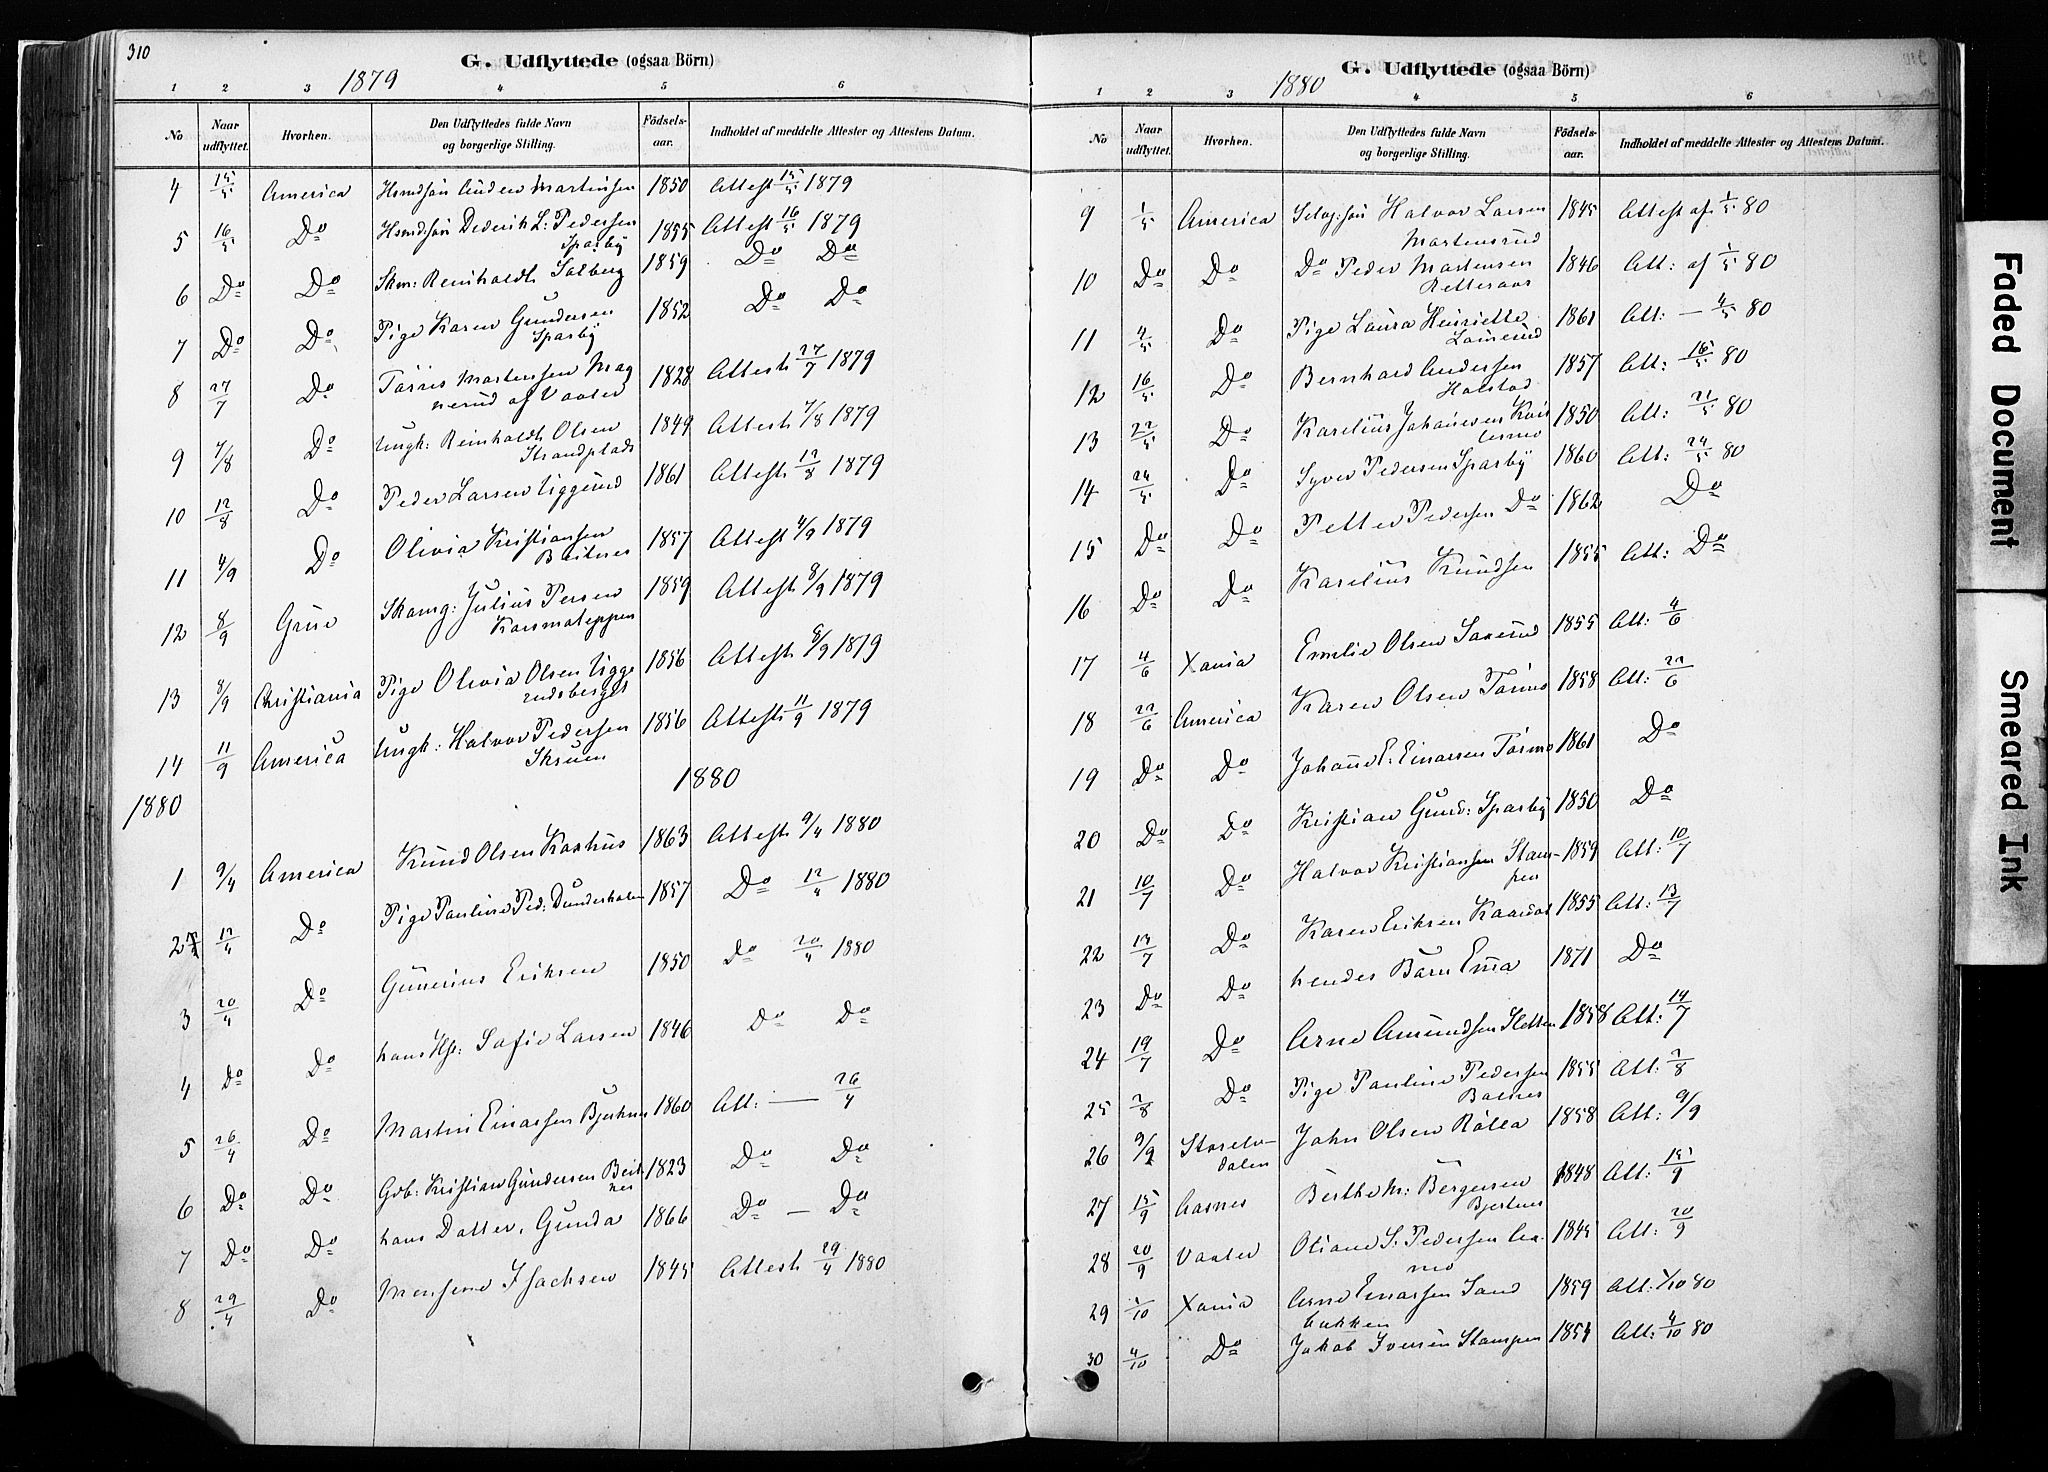 310
G. Udflyttede (ogsaa Börn)
1879
1 2 3 4 5 6
No Naar udflyttet. Hvorhen. Den Udflyttedes fulde Navn og borgerlige Stilling. Födsels-aar. Indholdet af meddelte Attester og Attestens Datum.
4 15/5 America Husmdsøn Anders Martinsen 1850 Attest 15/5 1879
5 16/5 Do Husmdsøn Dederik L: Pedersen 1855 Attest 16/5 1879
Sparby
6 Do Do Skm: Reinholdt Solberg 1859 Do Do
7 Do Do Pige Karen Gundersen 1852 Do Do
Sparby
8 27/7 Do Tørres Martensen Mag 1828 Attest 27/7 1879
nerud af Vaaler
9 7/8 Do Ungk: Reinholdt Olsen 1849 Attest 7/8 1879
Strandplads
10 12/8 Do Peder Larsen Uggerud 1861 Attest 12/8 1879
11 4/9 Do Olivia Kristiansen 1857 Attest 4/9 1879
Beitnes
12 8/9 Grue Skomg: Julius Persen 1859 Attest 8/9 1879
13 8/9 Christiania Pige Olivia Olsen Ugge 1856 Attest 8/9 1879
rudsberget
14 11/9 America Ungk: Halvor Pedersen 1856 Attest 11/9 1879
Skruen
1880 1880
1 9/4 America Knud Olsen Kashus 1863 Attest 9/4 1880
2 12/4 Do Pige Pauline Ped: Dunderholen 1857 Do 12/4 1880
3 20/4 Do Gunerius Eriksen 1850 Do 20/4 1880
4 Do Do hans H: Sofie Larsen 1846 Do Do
5 26/4 Do Martin Einarsen Bjerknes 1860 Att: — 26/4
6 Do Do Gdb: Kristian Gundersen Beit 1823 Do Do
nes
7 Do Do hans Datter, Gunda 1866 Do — Do
8 29/4 Do Monsine Isachsen 1845 Attest 29/4 1880
G. Udflyttede (ogsaa Börn)
1880
1 2 3 4 5 6
No Naar udflyttet. Hvorhen. Den Udflyttedes fulde Navn og borgerlige Stilling. Födsels-aar. Indholdet af meddelte Attester og Attestens Datum.
9 1/5 America Selvg:søn Halvor Larsen 1845 Attest af 1/5 80
Martensrud
10 Do Do Do Peder Martensen 1846 Att: af 1/5 80
11 4/5 Do Pige Laura Henriette 1861 Att: — 4/5 80
12 16/5 Do Bernhard Andersen 1857 Att: 16/5 80
Halstad
13 22/5 Do Karelius Johansen 1850 Att: 22/5 80
14 24/5 Do Syver Pedersen Sparby 1860 Att: 24/5 80
15 Do Do Petter Pedersen Do 1862 Do
16 Do Do Karelius Knudsen 1855 Att: Do
17 4/6 Xania Emilie Olsen Saxrud 1855 Att: 4/6
18 22/6 America Karen Olsen Tørmo 1858 Att: 22/6
19 Do Do Johanne E: Einarsen Tørmo 1861 Do
20 Do Do Kristian Gund: Sparby 1850 Do
21 10/7 Do Halvor Kristiansen Stam- 1859 Att: 10/7
pen
22 13/7 Do Karen Eriksen 1855 Att: 13/7
23 Do Do hendes Barn Emma 1871 Do
24 19/7 Do Arne Amundsen Sletten 1858 Att: 19/7
25 2/8 Do Pige Pauline Pedersen 1855 Att: 2/8
Baknes
26 9/9 Storelv- John Olsen Rolla 1858 Att: 9/9
dalen
27 15/9 Aasnes Berthe M: Børgersen 1848 Att: 15/9
Bjerknes
28 20/9 Vaaler Otiane S: Pedersen Aa- 1845 Att: 20/9
mo
29 1/10 Xania Arne Einarsen Sand 1859 Att: 1/10 80
bakken
30 4/10 Do Jakob Iversen Stampen 1854 Att: 4/10 80
Faded Document
Smeared Ink